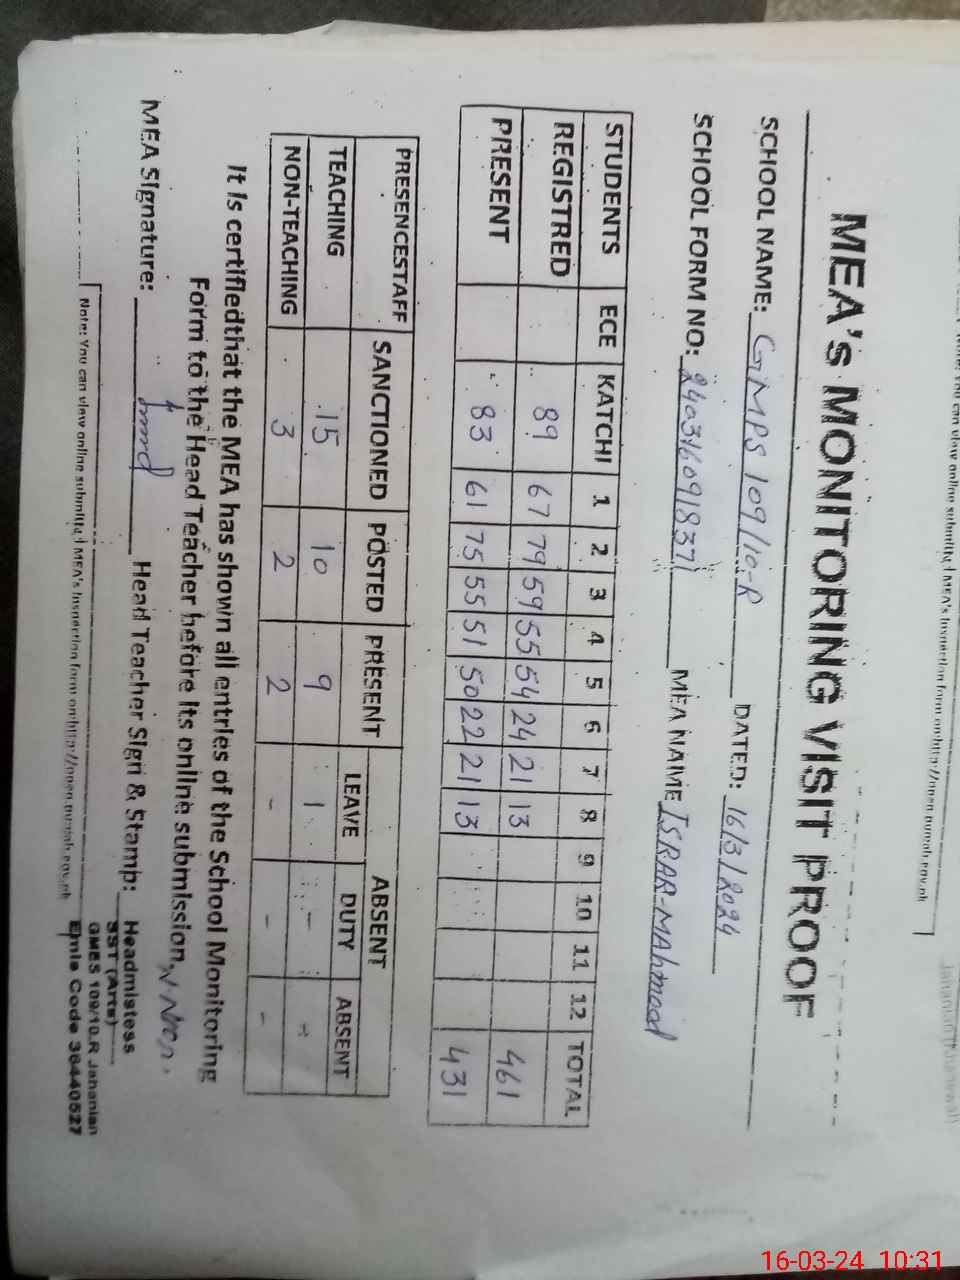 MEA's MONITORING VISIT PROOF
SCHOOL NAME: GMPS 109/10-R DATED: 16/3/2024
SCHOOL FORM NO: MEA NAME ISRAR-MAhmad
STUDENTS ECE KATCHI 1 2 3 4 5 6 7 8 9 10 11 12 TOTAL
REGISTRED 89 67 79 59 55 54 24 21 13 461
PRESENT 83 61 75 55 51 50 22 21 13 431
PRESENCESTAFF SANCTIONED POSTED PRESENT ABSENT
LEAVE DUTY ABSENT
TEACHING 15 10 9 1 - -
NON-TEACHING 3 2 2 - - -
It is certifiedthat the MEA has shown all entries of the School Monitoring
Form to the Head Teacher before its online submission.
MEA Signature: Head Teacher Sign & Stamp:
Headmistess
SST (Arts)
GMES 109/10.R Jahanian
Emis Code 36440527
Note: You can view online submitted MEA's Inspection form on
16-03-24 10:31